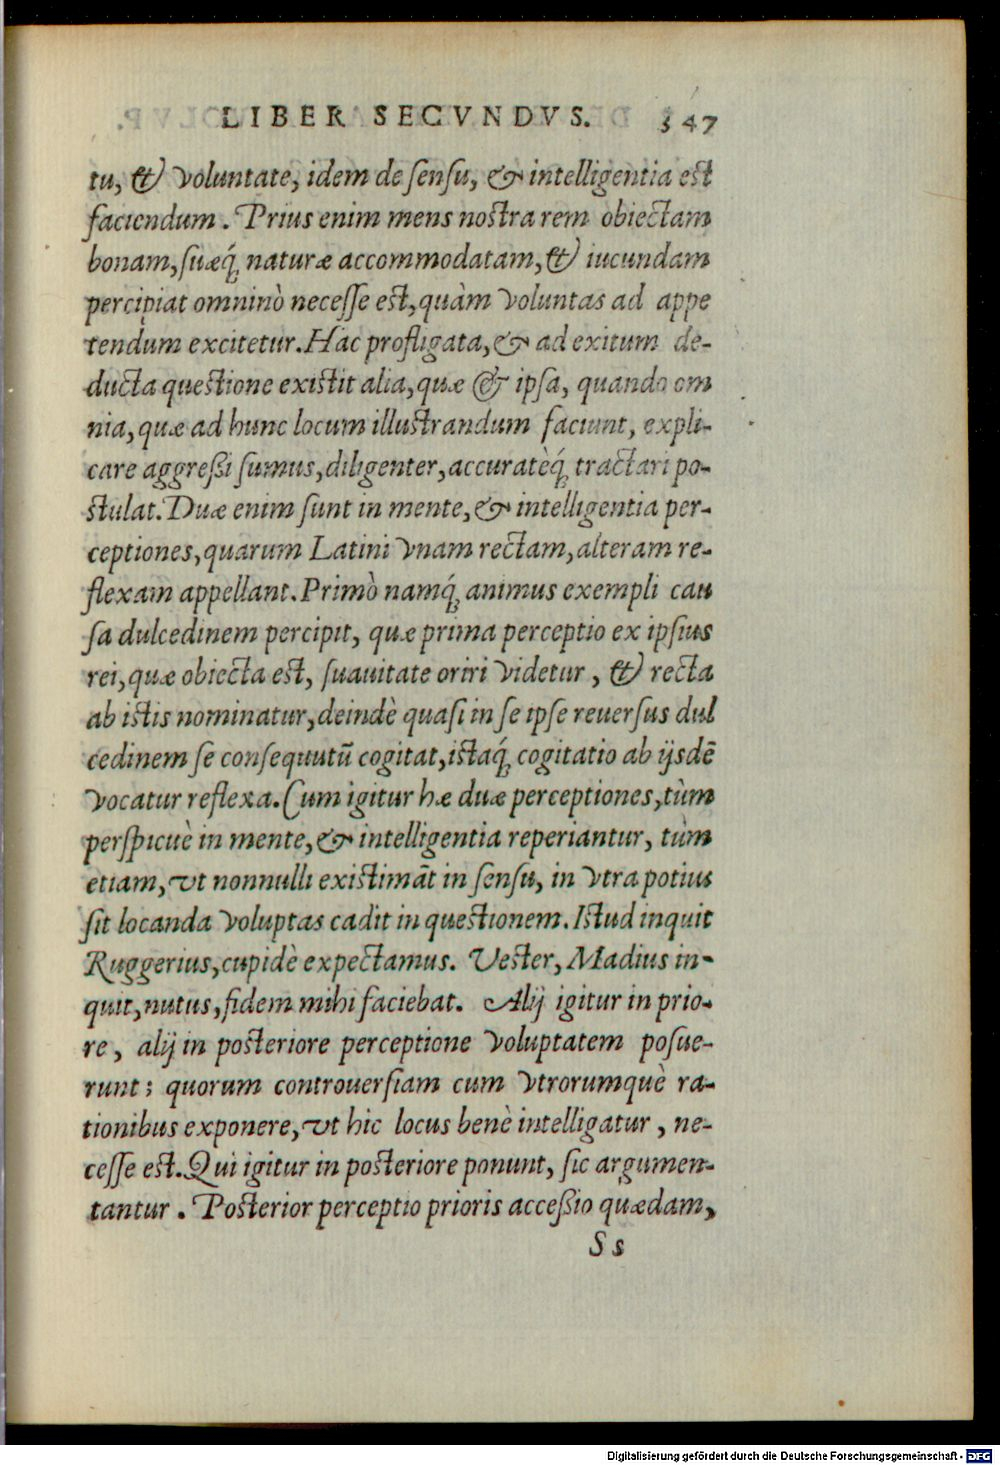 LIBER SECVNDVS. 347
tu, & voluntate, idem de sensu, & intelligentia est
faciendum. Prius enim mens nostra rem obiectam
bonam, suæq́; naturæ accommodatam, & iucundam
percipiat omninò necesse est, quàm voluntas ad appe
tendum excitetur. Hac profligata, & ad exitum de-
ducta questione existit alia, quæ & ipsa, quando om
nia, quæ ad hunc locum illustrandum faciunt, expli-
care aggreßi sumus, diligenter, accuratèq́; tractari po-
stulat. Duæ enim sunt in mente, & intelligentia per-
ceptiones, quarum Latini vnam rectam, alteram re-
flexam appellant. Primò namq́; animus exempli cau
sa dulcedinem percipit, quæ prima perceptio ex ipsius
rei, quæ obiecta est, suauitate oriri videtur, & recta
ab istis nominatur, deindè quasi in se ipse reuersus dul
cedinem se consequutū cogitat, istaq́; cogitatio ab ijsdē
vocatur reflexa. Cum igitur hæ duæ perceptiones, tùm
perspicuè in mente, & intelligentia reperiantur, tùm
etiam, vt nonnulli existimāt in sensu, in vtra potius
sit locanda voluptas cadit in questionem. Istud inquit
Ruggerius, cupidè expectamus. Vester, Madius in-
quit, nutus, fidem mihi faciebat. Alij igitur in prio-
re, alij in posteriore perceptione voluptatem posue-
runt; quorum controuersiam cum vtrorumquè ra-
tionibus exponere, vt hic locus benè intelligatur, ne-
cesse est. Qui igitur in posteriore ponunt, sic argumen-
tantur. Posterior perceptio prioris acceßio quædam,
Ss
Digitalisierung gefördert durch die Deutsche Forschungsgemeinschaft - DFG